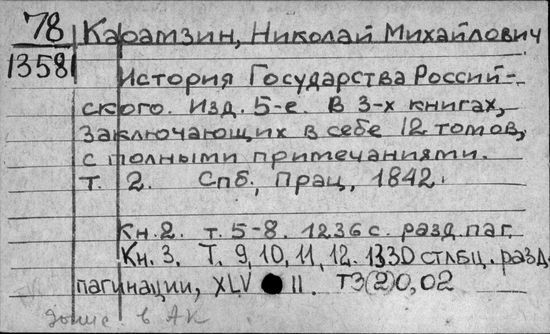 78 Карамзин, Николай Михайлович
1358
История Государства Россий-
ского. Изд. 5-е. В 3-х книгах,
заключающих в себе 12 томов,
с полными примечаниями.
т. 2. Спб., Прац, 1842.
Кн. 2. т. 5-8. 1236 с. разд. паг.
Кн. 3. Т. 9, 10, 11, 12. 1330 стлбц. разд.
пагинации, XLV II. Т3(2)0,02
в АК